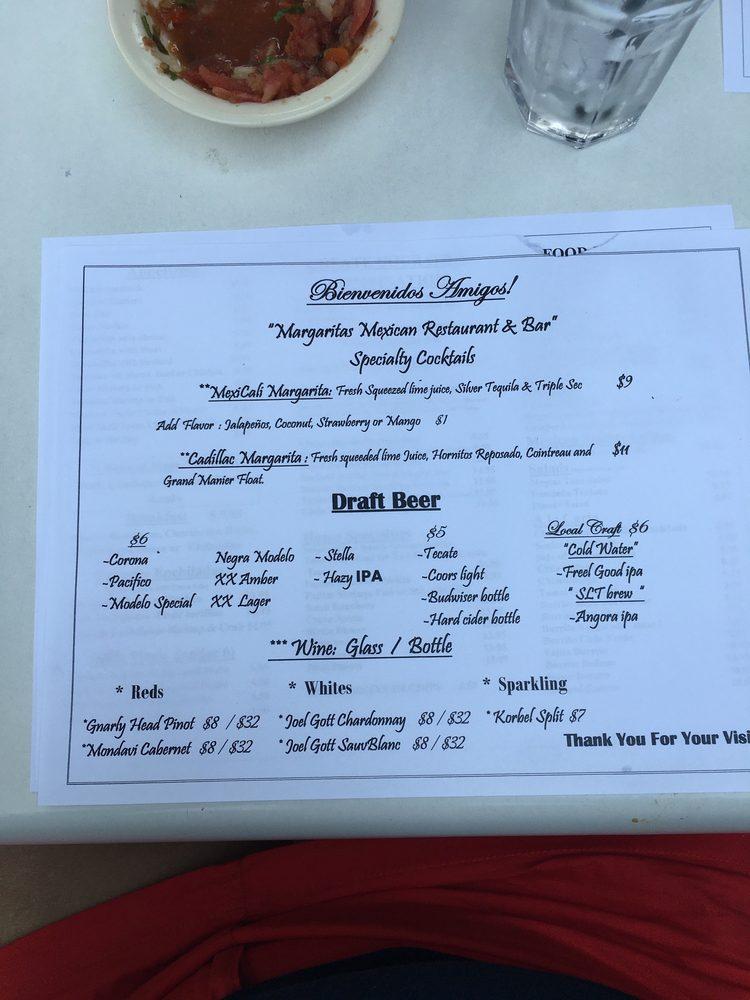 FOOD
Bienvenidos Amigos!
"Margaritas Mexican Restaurant & Bar"
Specialty Cocktails
**MexiCali Margarita: Fresh Squeezed lime juice, Silver Tequila & Triple Sec $9
Add Flavor : Jalapeños, Coconut, Strawberry or Mango $1
**Cadillac Margarita : Fresh squeeded lime Juice, Hornitos Reposado, Cointreau and $11
Grand Manier Float.
Draft Beer
$6 $5 Local Craft $6
~Corona Negra Modelo ~ Stella ~Tecate "Cold Water"
~Pacifico XX Amber ~ Hazy IPA ~Coors light ~Freel Good ipa
~Modelo Special XX Lager ~Budwiser bottle "SLT brew "
~Hard cider bottle ~Angora ipa
*** Wine: Glass / Bottle
* Reds * Whites * Sparkling
*Gnarly Head Pinot $8 / $32 *Joel Gott Chardonnay $8 / $32 *Korbel Split $7
*Mondavi Cabernet $8 / $32 *Joel Gott SauvBlanc $8 / $32
Thank You For Your Visi